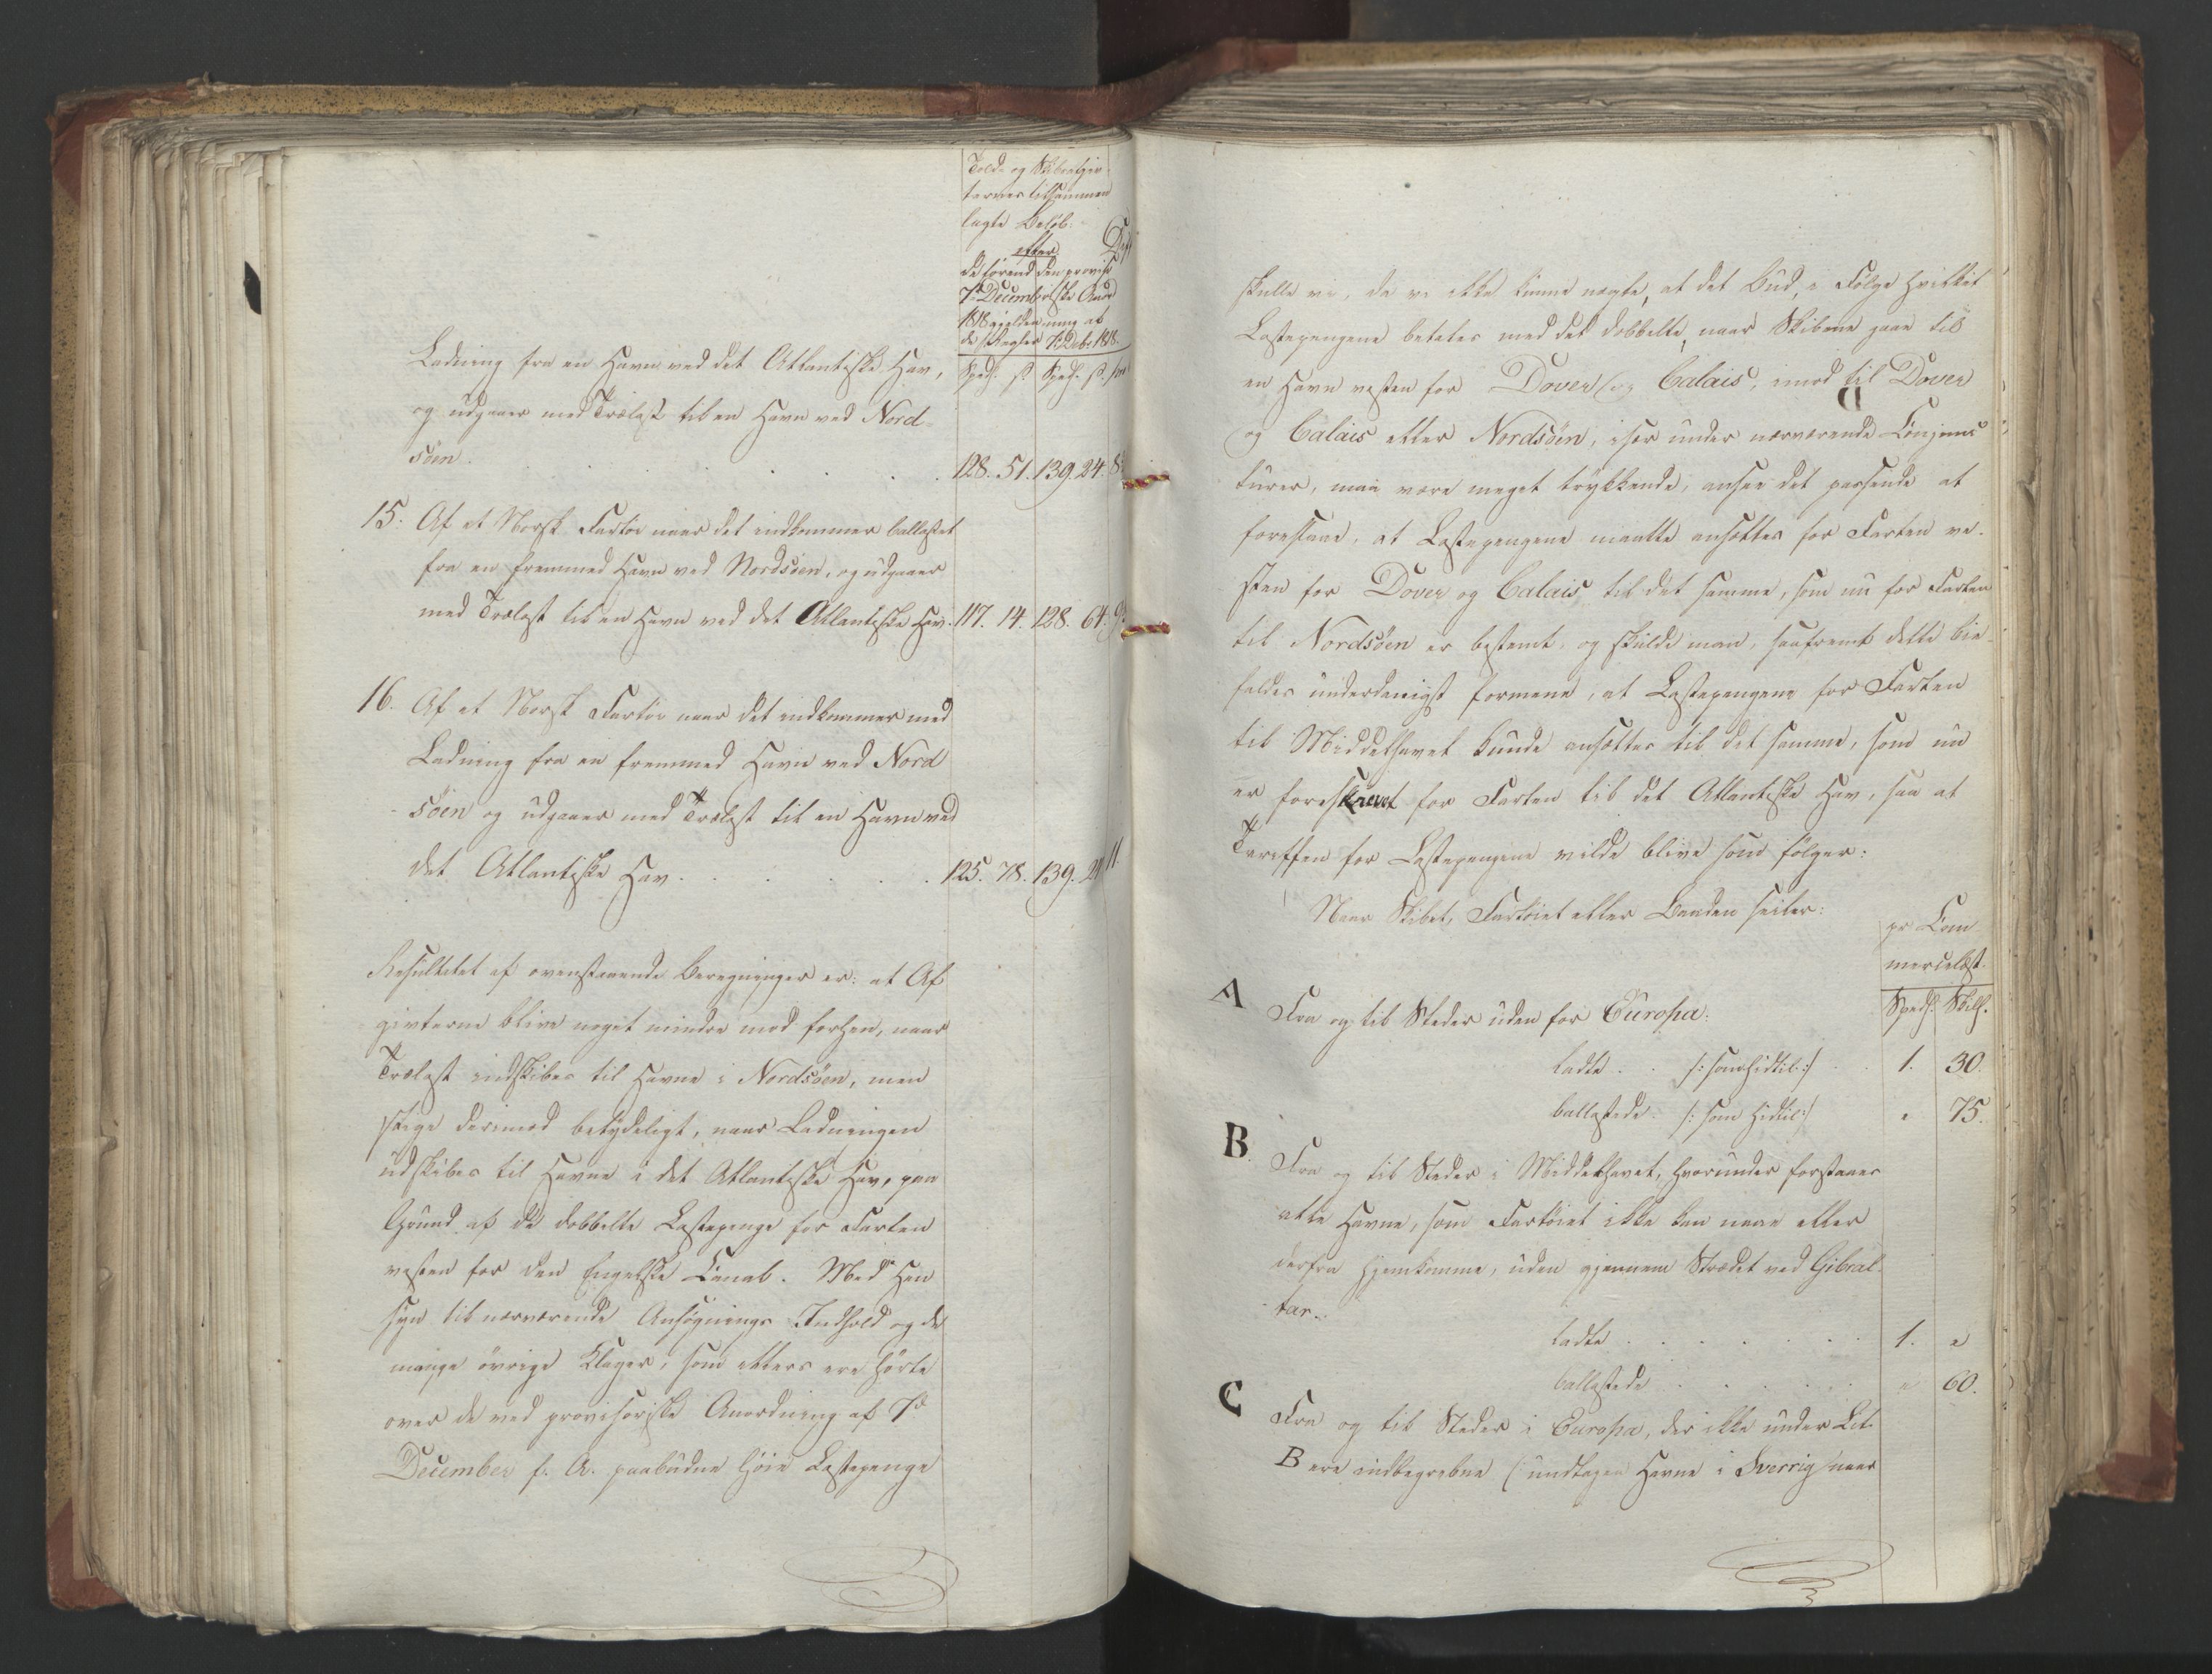 Told- og Skibsafgiv-
ternes tilsammen
lagte Beløb:
efter
de førend den provis
7de Decemb. oriske Anord
1818 gjelden ning af
de Regler 7. Decbr. 1818.
Spd. ß. Spd. ß.
Ladning fra en Havn ved det Atlantiske Hav,
og udgaaer med Trælast til en Havn ved Nord-
søen . . . . . . . 128. 51. 139. 24. 8
15. Af et Norsk Fartøi naar det indkommer ballastet
fra en fremmed Havn ved Nordsøen, og udgaaer
med Trælast til en Havn ved det Atlantiske Hav. 117. 14. 128. 64. 9
16. Af et Norsk Fartøi naar det indkommer med
Ladning fra en fremmed Havn ved Nord
søen og udgaaer med Trælast til en Havn ved
det Atlantiske Hav . . . . . . 125. 78. 139. 11.
Resultatet af ovenstaaende Beregninger er: at Af
givterne blive noget mindre mod forhen, naar
Trælast indskibes til Havne i Nordsøen, men
stige derimod betydeligt, naar Ladningen
udskibes til Havne i det Atlantiske Hav, paa
Grund af de dobbelte Læstepenge for Farten
vesten for den Engelske Canal. Med Hen
syn til nærværende Ansøgnings Indhold og de
mange øvrige Klager, som ellers ere hørte
over de ved provisoriske Anordning af 7de
December f. A. paabudne høie Læstepenge
skulle vi, da vi ikke kunne nægte, at det Bud, i Følge hvilket
Læstepengene betales med det dobbelte, naar Skibene gaae til
en Havn vesten for Dover og Calais, imod til Dover
og Calais eller Nordsøen, især under nærværende Conjunc
turer, maa være meget trykkende, ansee det passende at
foreslaae, at Læstepengene maatte ansættes for Farten ve-
sten for Dover og Calais til det samme, som nu for Farten
til Nordsøen er bestemt, og skulde man, saafremt dette bi-
faldes underdanigst formene, at Læstepengene for Farten
til Middelhavet kunde ansættes til det samme, som nu
er foreskrevet for Farten til det Atlantiske Hav, saa at
Tariffen for Læstepengene vilde blive som følger:
Naar Skibet, Fartøiet eller Baaden seiler:
pr Com
mercelæst.
Spd. Skill.
A Fra og til Steder uden for Europa:
ladte . . /: som hidtil :/ . . 1. 30.
ballastede . /: som hidtil :/ " 75.
B. Fra og til Steder i Middelhavet, hvorunder forstaaes
alle Havne, som Fartøiet ikke kan naae eller
derfra hjemkomme, uden gjennem Strædet ved Gibral-
tar.
ladte . . . . . . . 1. "
ballastede . . . . . " 60.
C Fra og til Steder i Europa, der ikke under Lit.
B ere indbegrebne (undtagen Havne i Sverrig naar